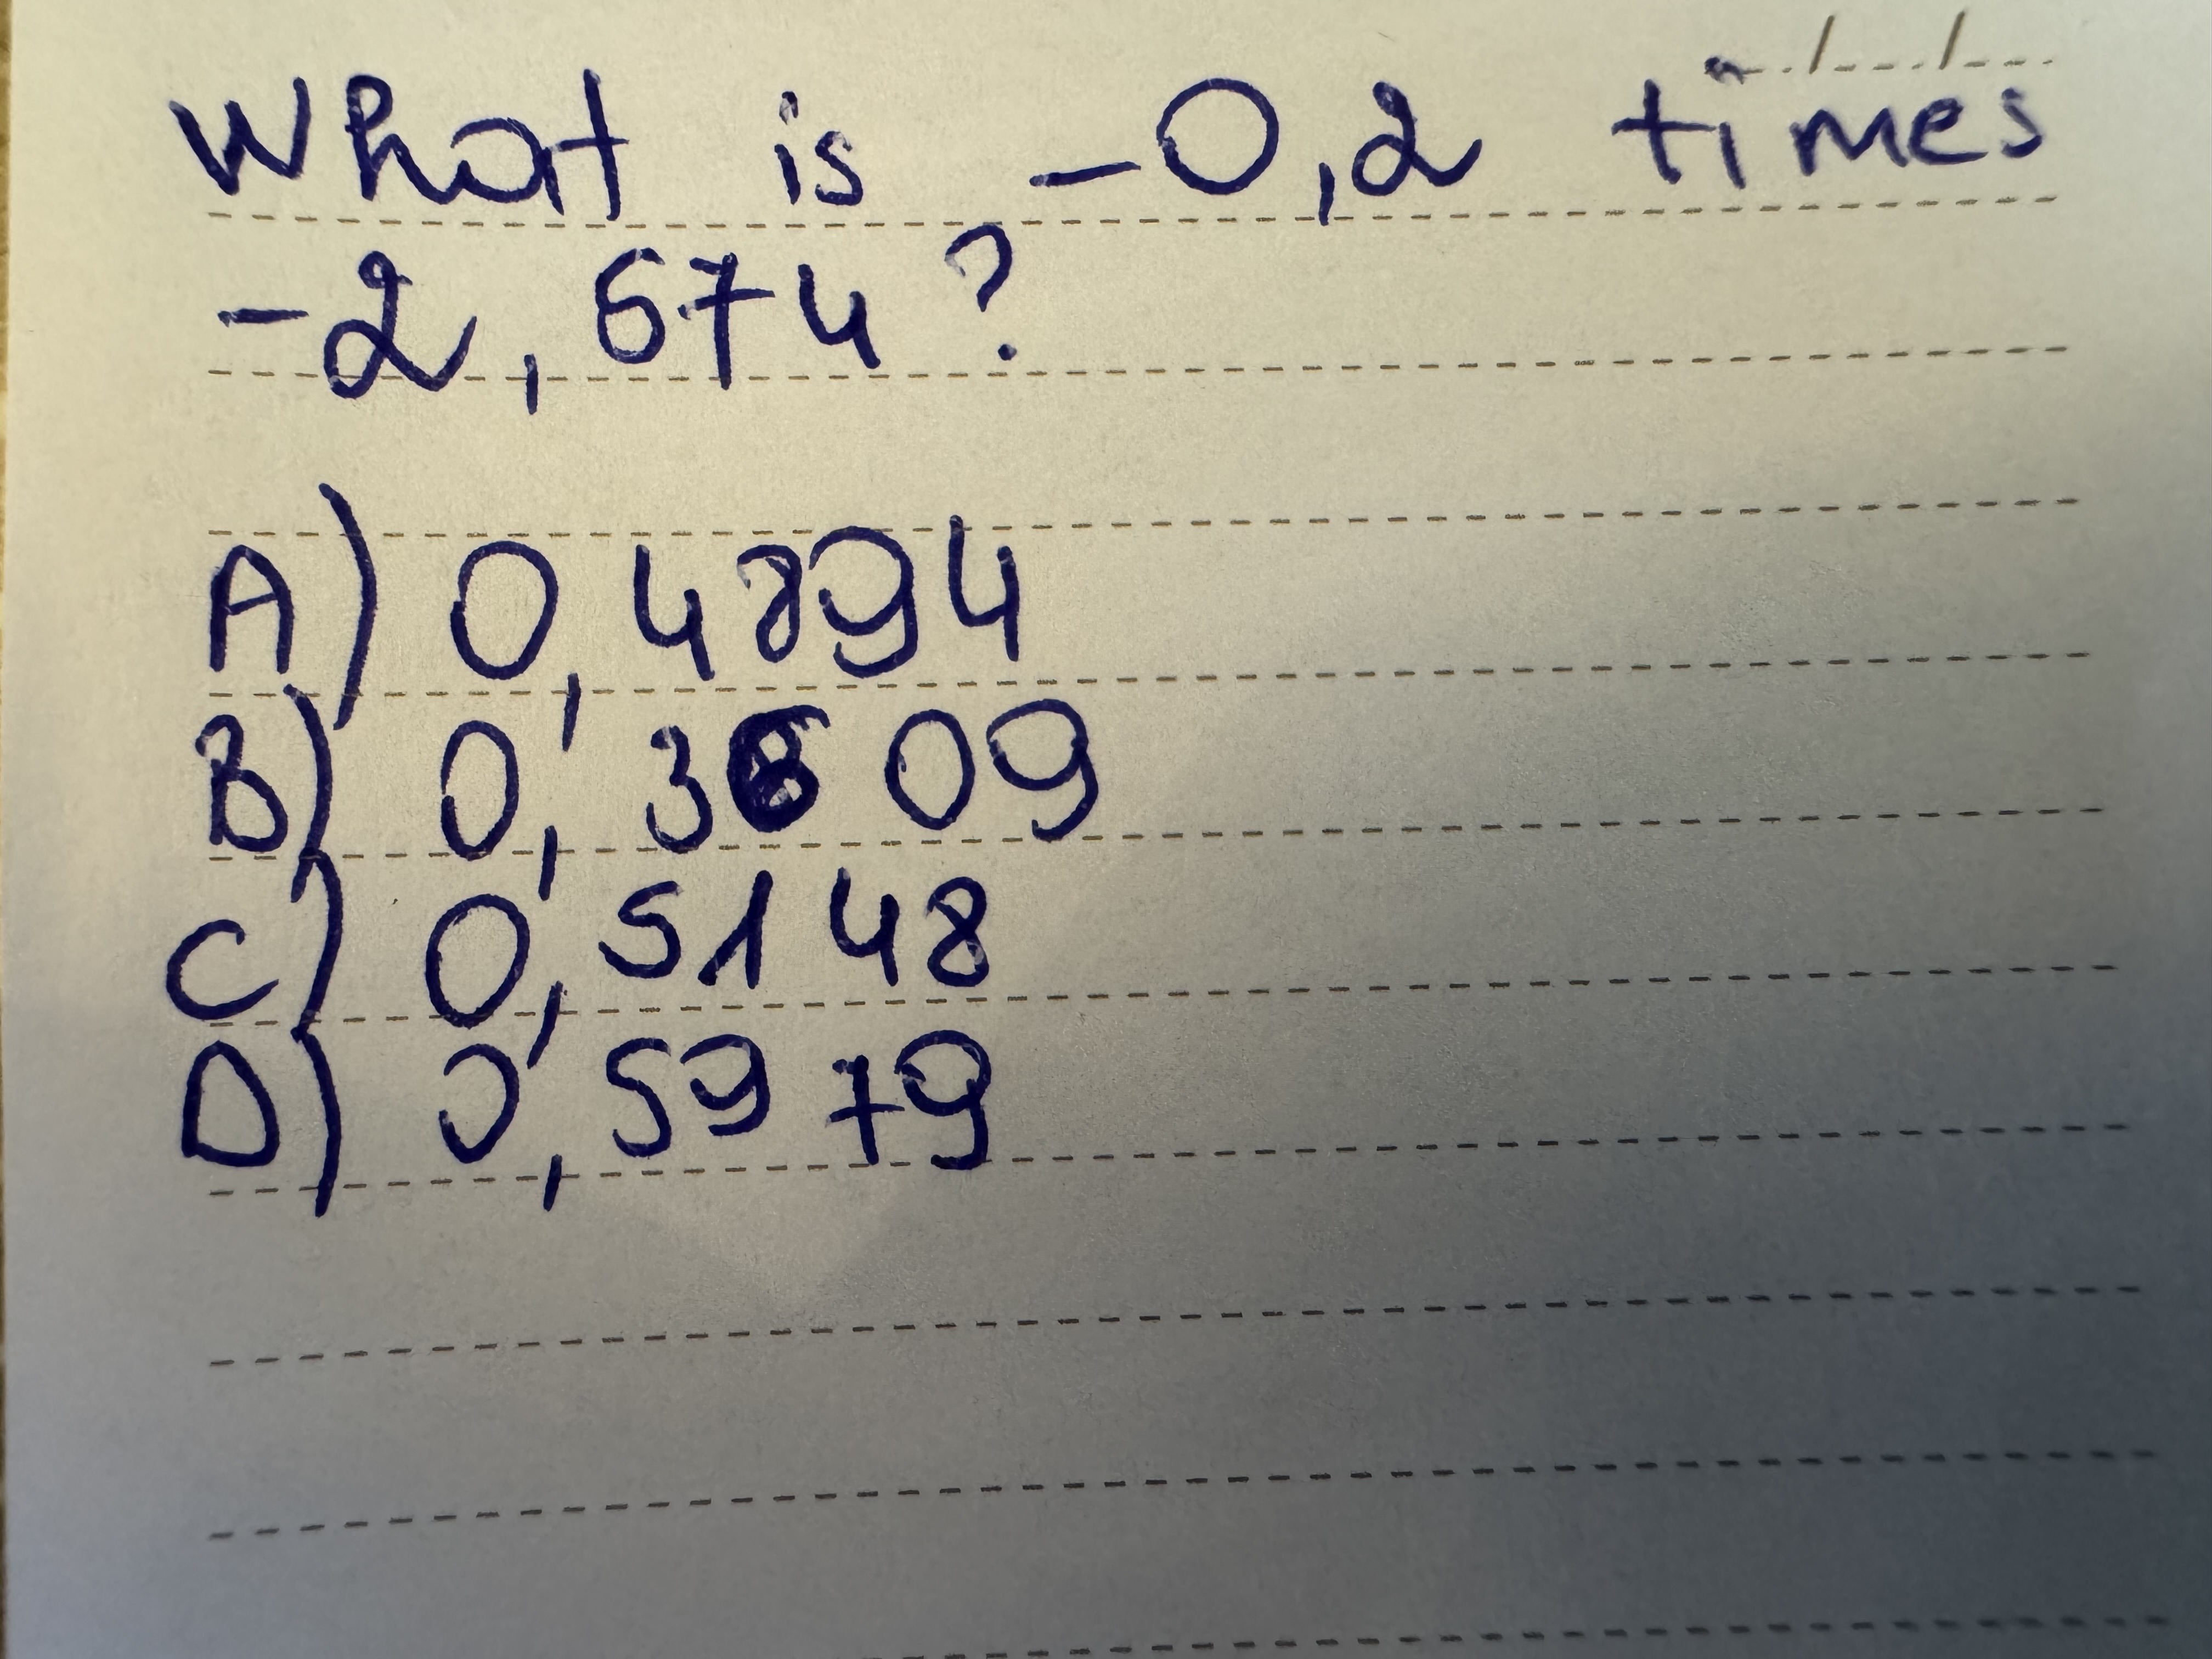 What is -0,2 times
-2,674?
A) 0,4894
B)
C) 0,5148
D) 0,5979